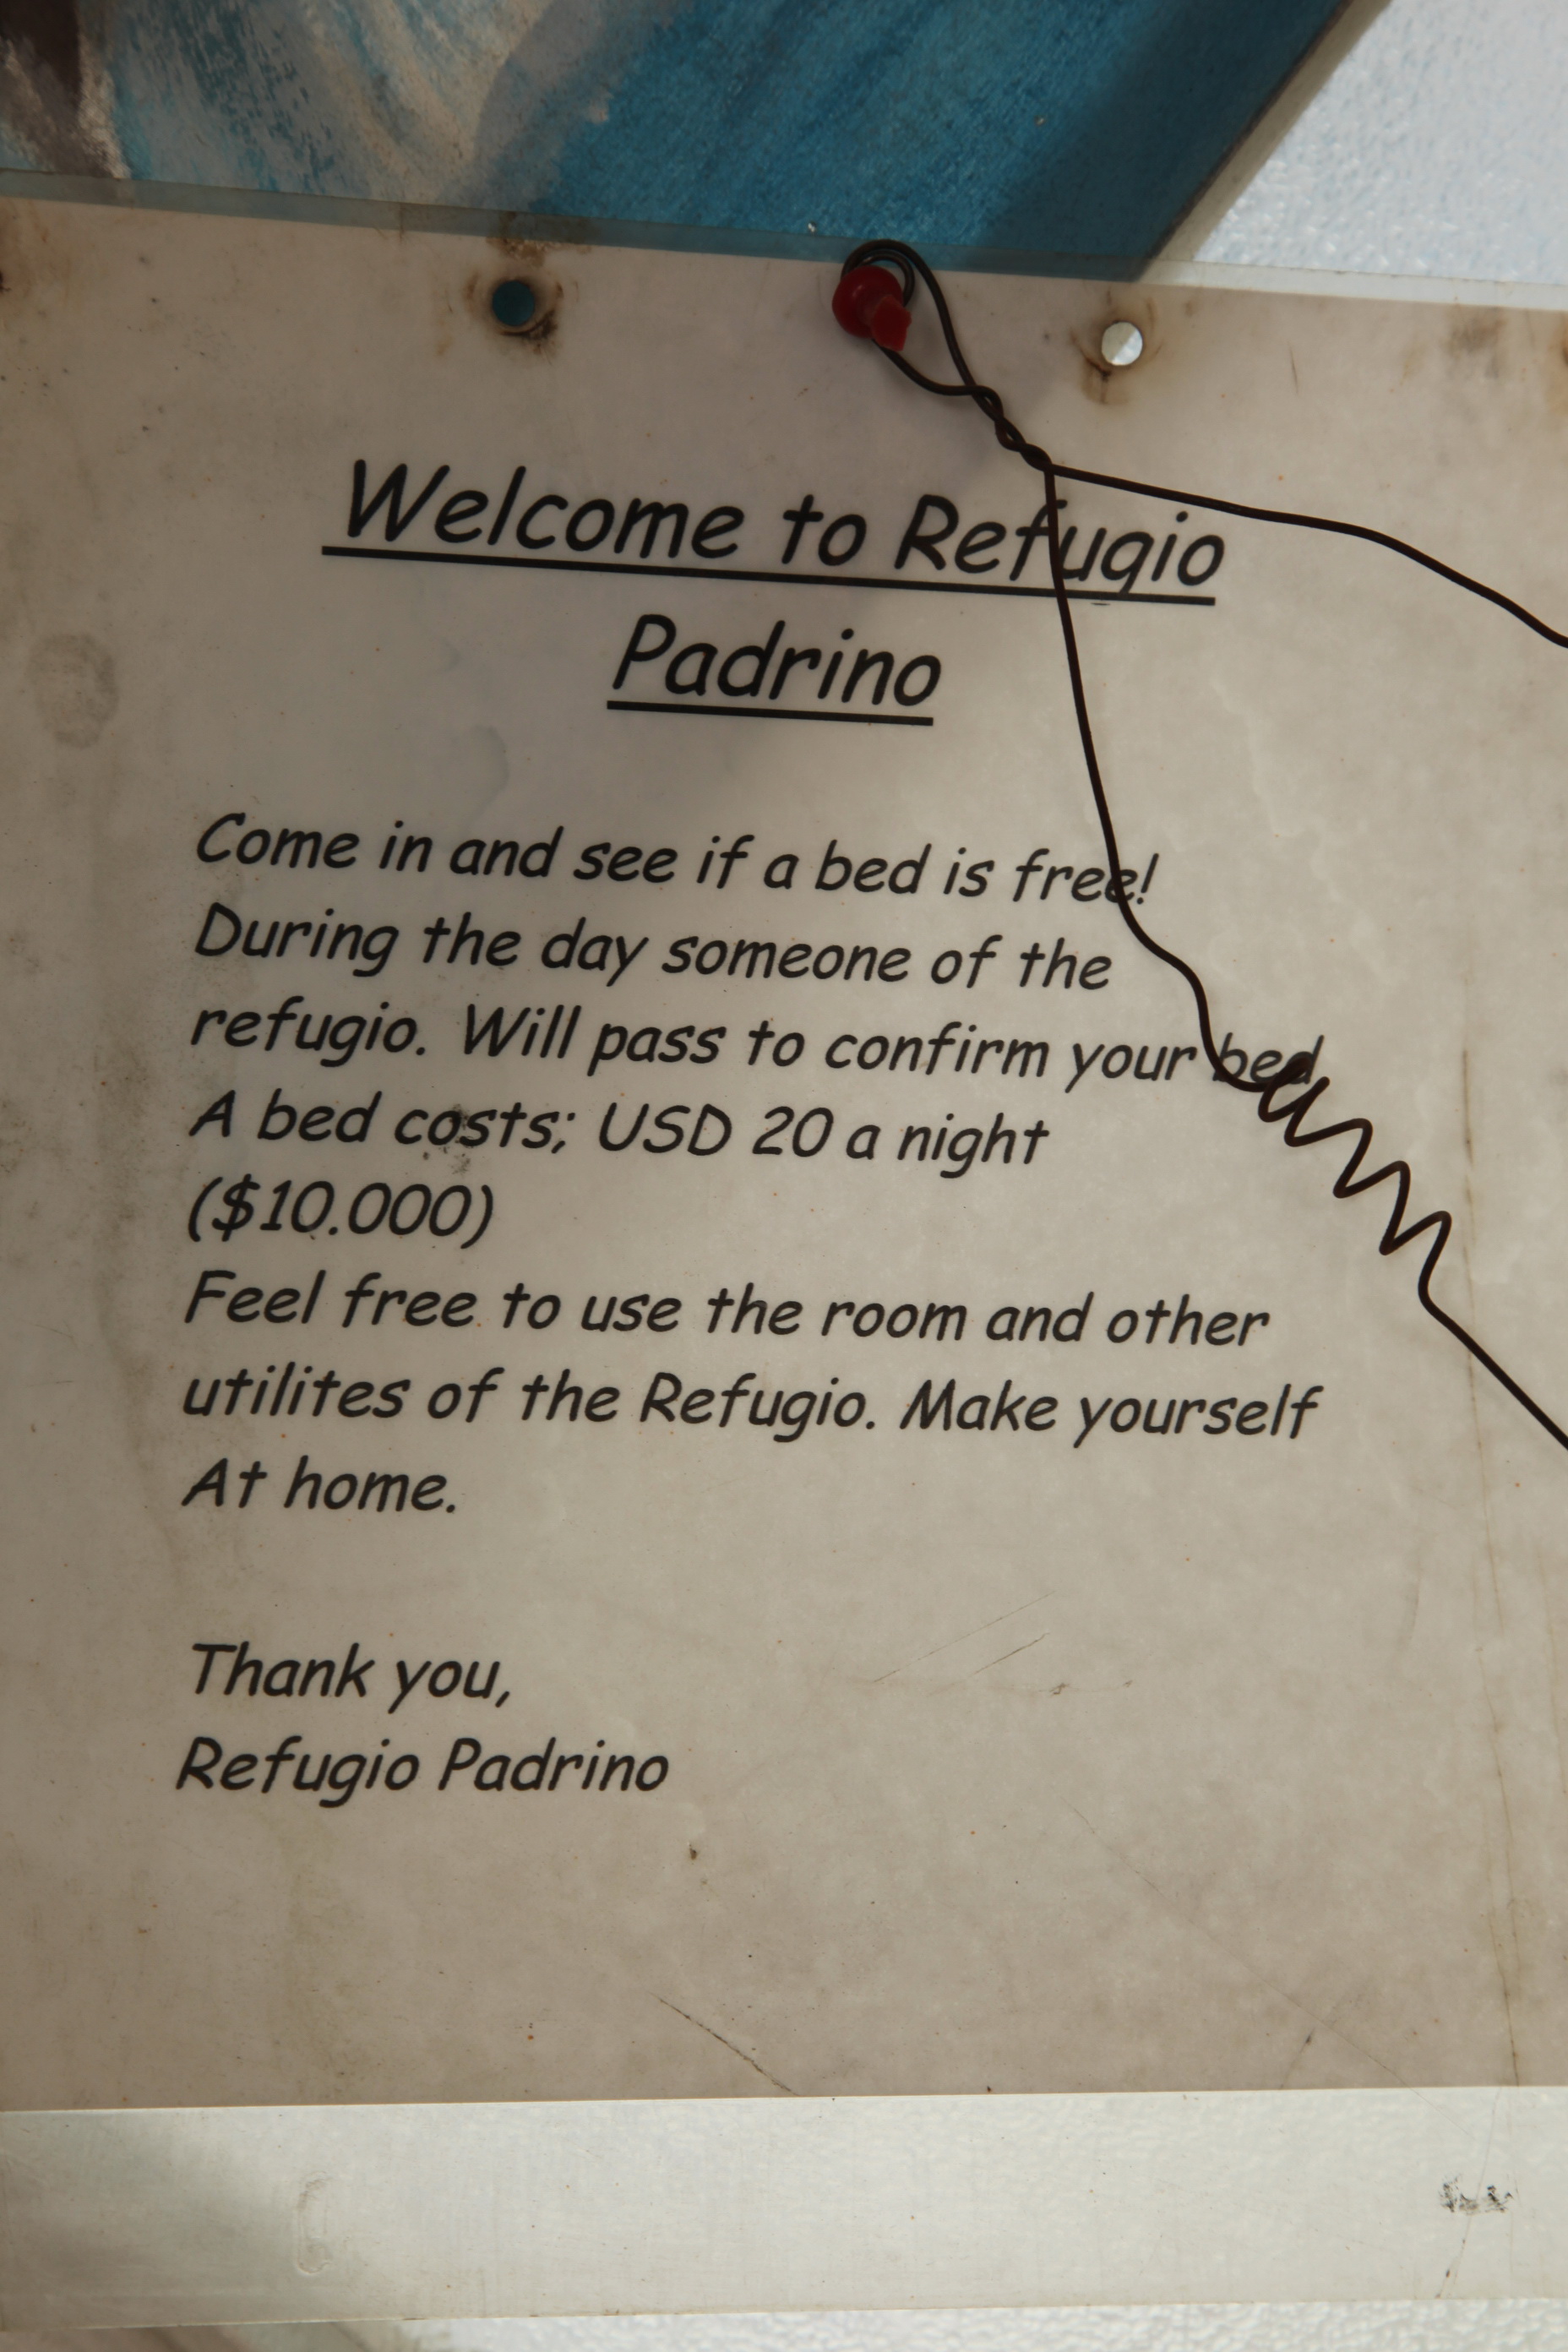 Welcome to Refugio
Padrino
Come in and see if a bed is free!
During the day someone of the
refugio. Will pass to confirm your bed
A bed costs; USD 20 a night
($10.000)
Feel free to use the room and other
utilites of the Refugio. Make yourself
At home.
Thank you,
Refugio Padrino